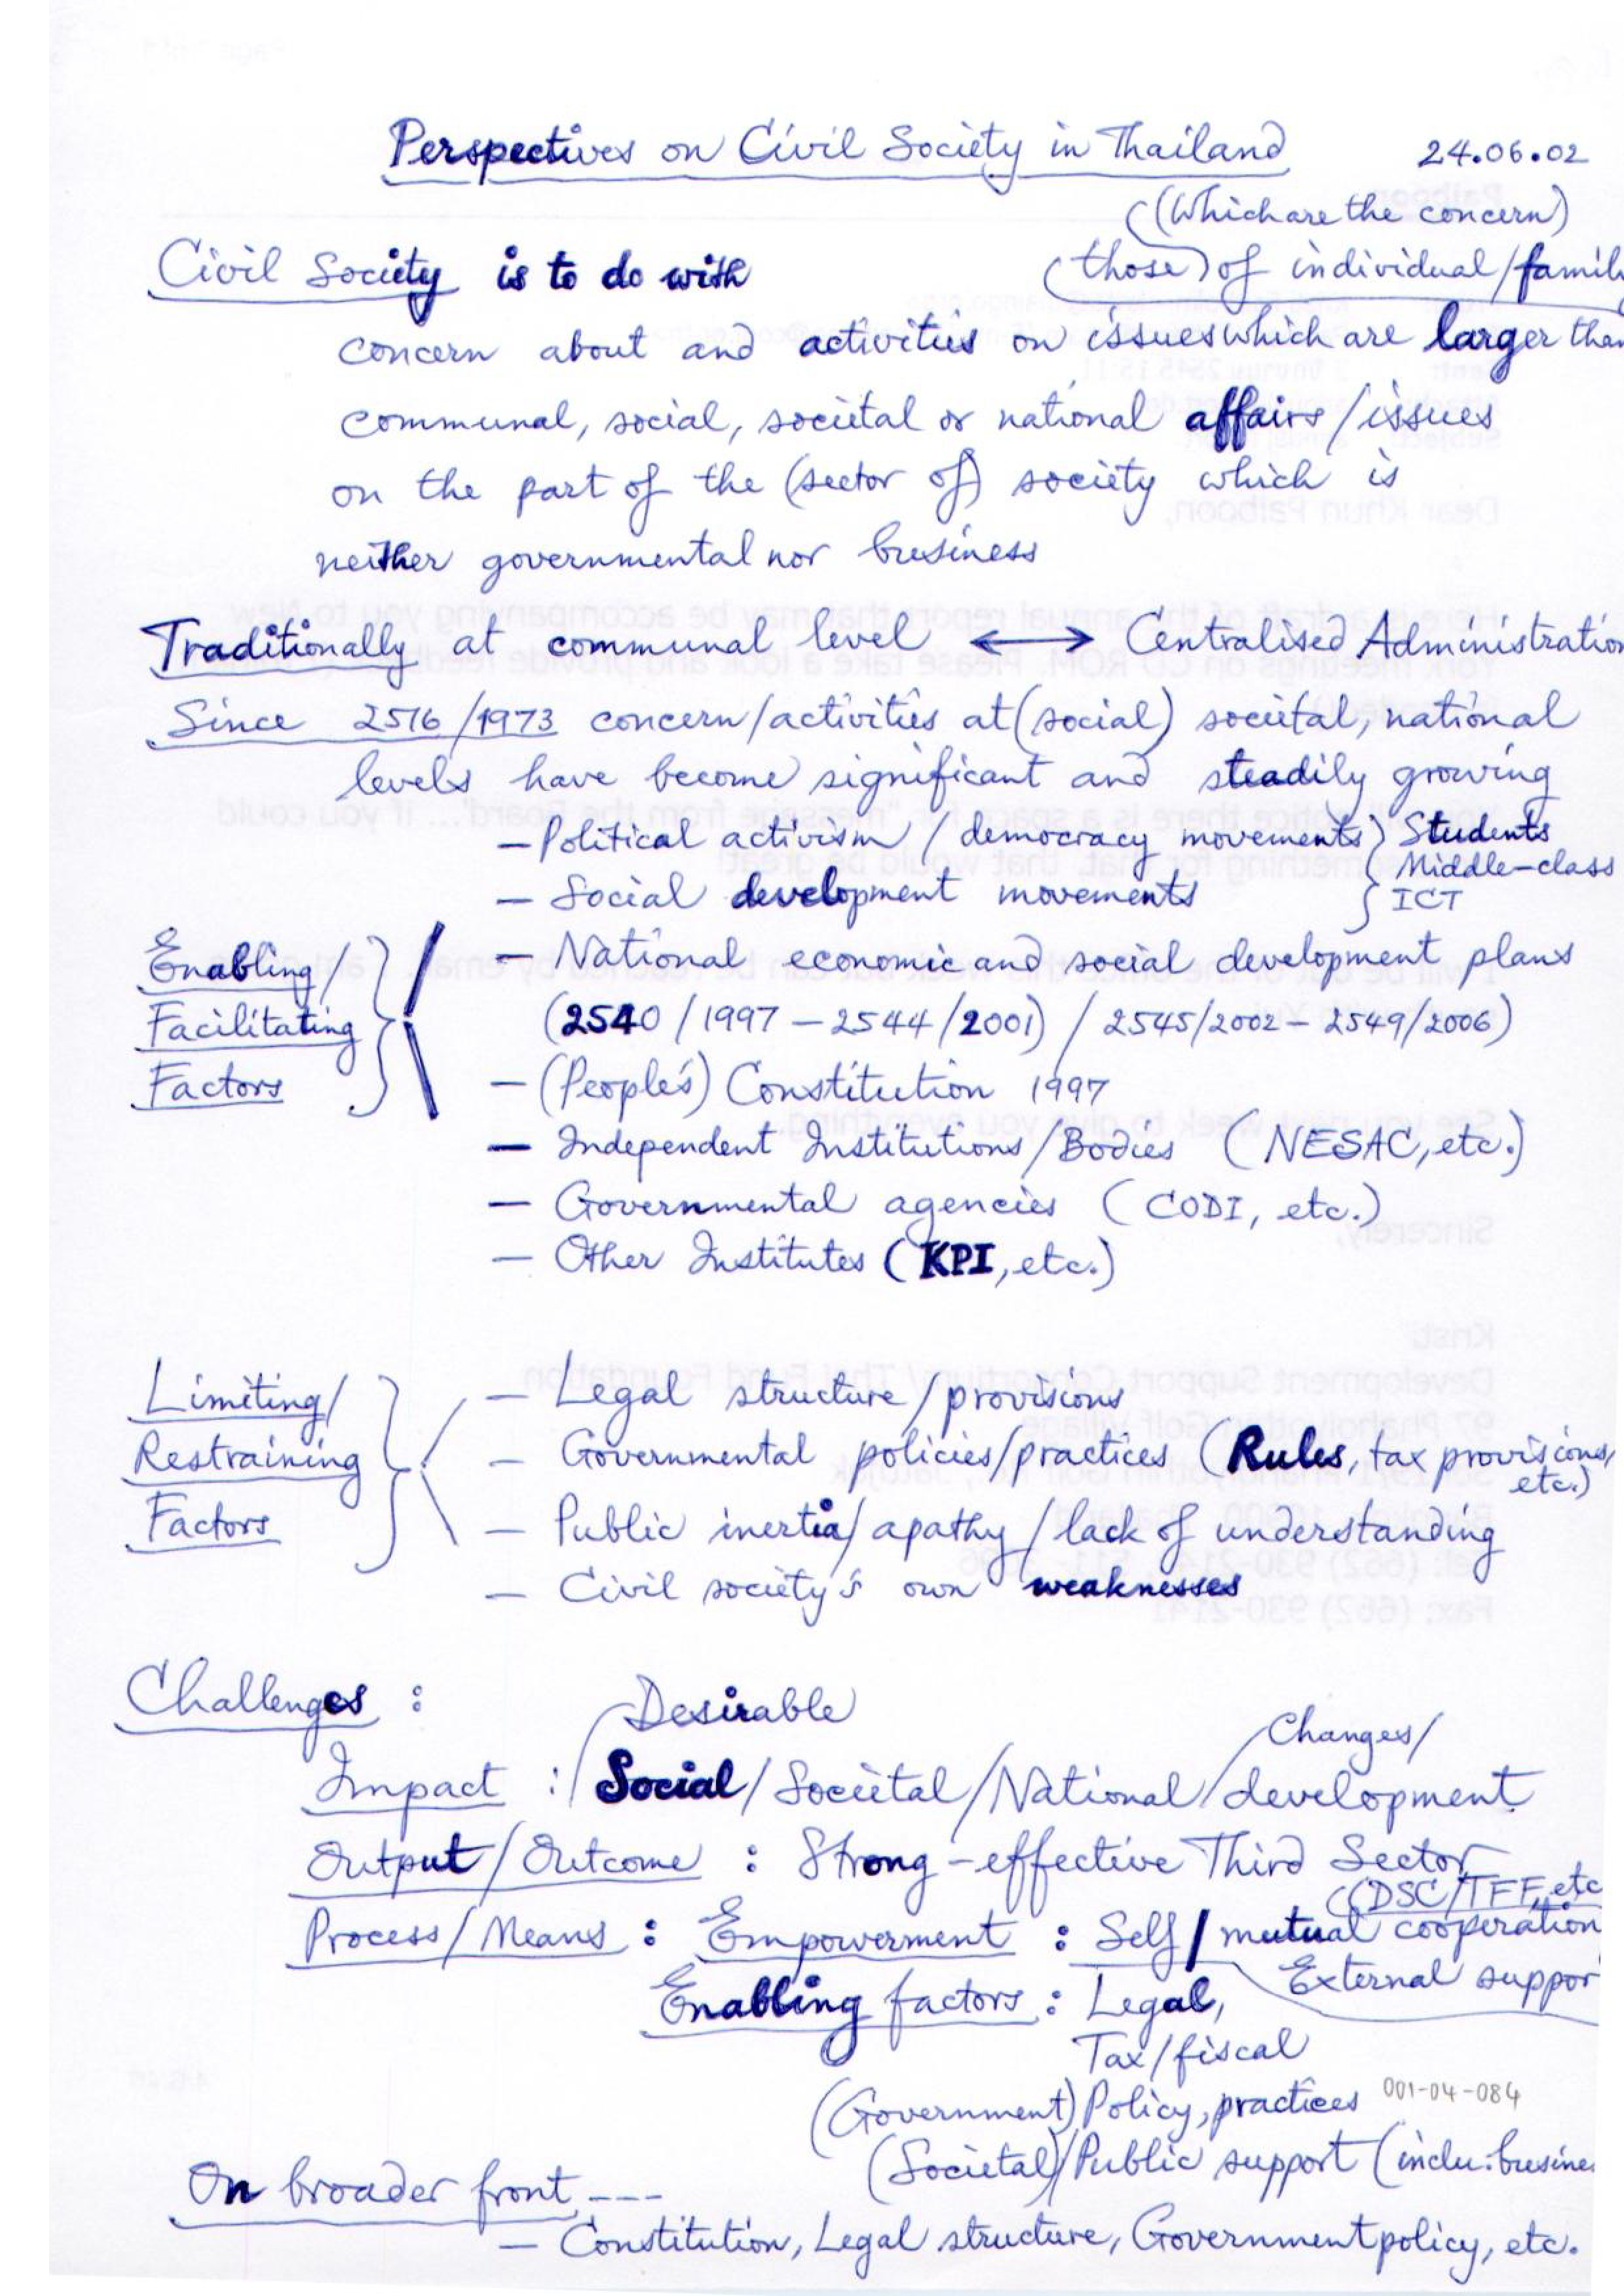 Perspectives on Civil Society in Thailand 24.06.02
((Which are the concern)
Civil Society is to do with (those) of individual/family
concern about and activities on issues which are larger than
communal, social, societal or national affairs/issues
on the part of the (sector of) society which is
neither governmental nor business
Traditionally at communal level ⟷ Centralised Administration
Since 2516/1973 concern/activities at (social) societal, national
levels have become significant and steadily growing
— Political activism / democracy movements } Students
Middle-class
— Social development movements } ICT
Enabling/ — National economic and social development plans
Facilitating (2540/1997 – 2544/2001) / 2545/2002 – 2549/2006)
Factors — (People's) Constitution 1997
— Independent Institutions/Bodies (NESAC, etc.)
— Governmental agencies (CODI, etc.)
— Other Institutes (KPI, etc.)
Limiting/ — Legal structure/provisions
Restraining — Governmental policies/practices (Rules, tax provisions,
etc.)
Factors — Public inertia/apathy/lack of understanding
— Civil society's own weaknesses
Challenges : Desirable
Changes/
Impact : Social/Societal/National/development
Output/Outcome : Strong-effective Third Sector
((DSC/TFF, etc
Process/Means : Empowerment : Self/mutual cooperation
External suppor
Enabling factors : Legal,
Tax/fiscal
(Government) Policy, practices 001-04-084
(Societal)/Public support (inclu. busine
On broader front ---
— Constitution, Legal structure, Government policy, etc.